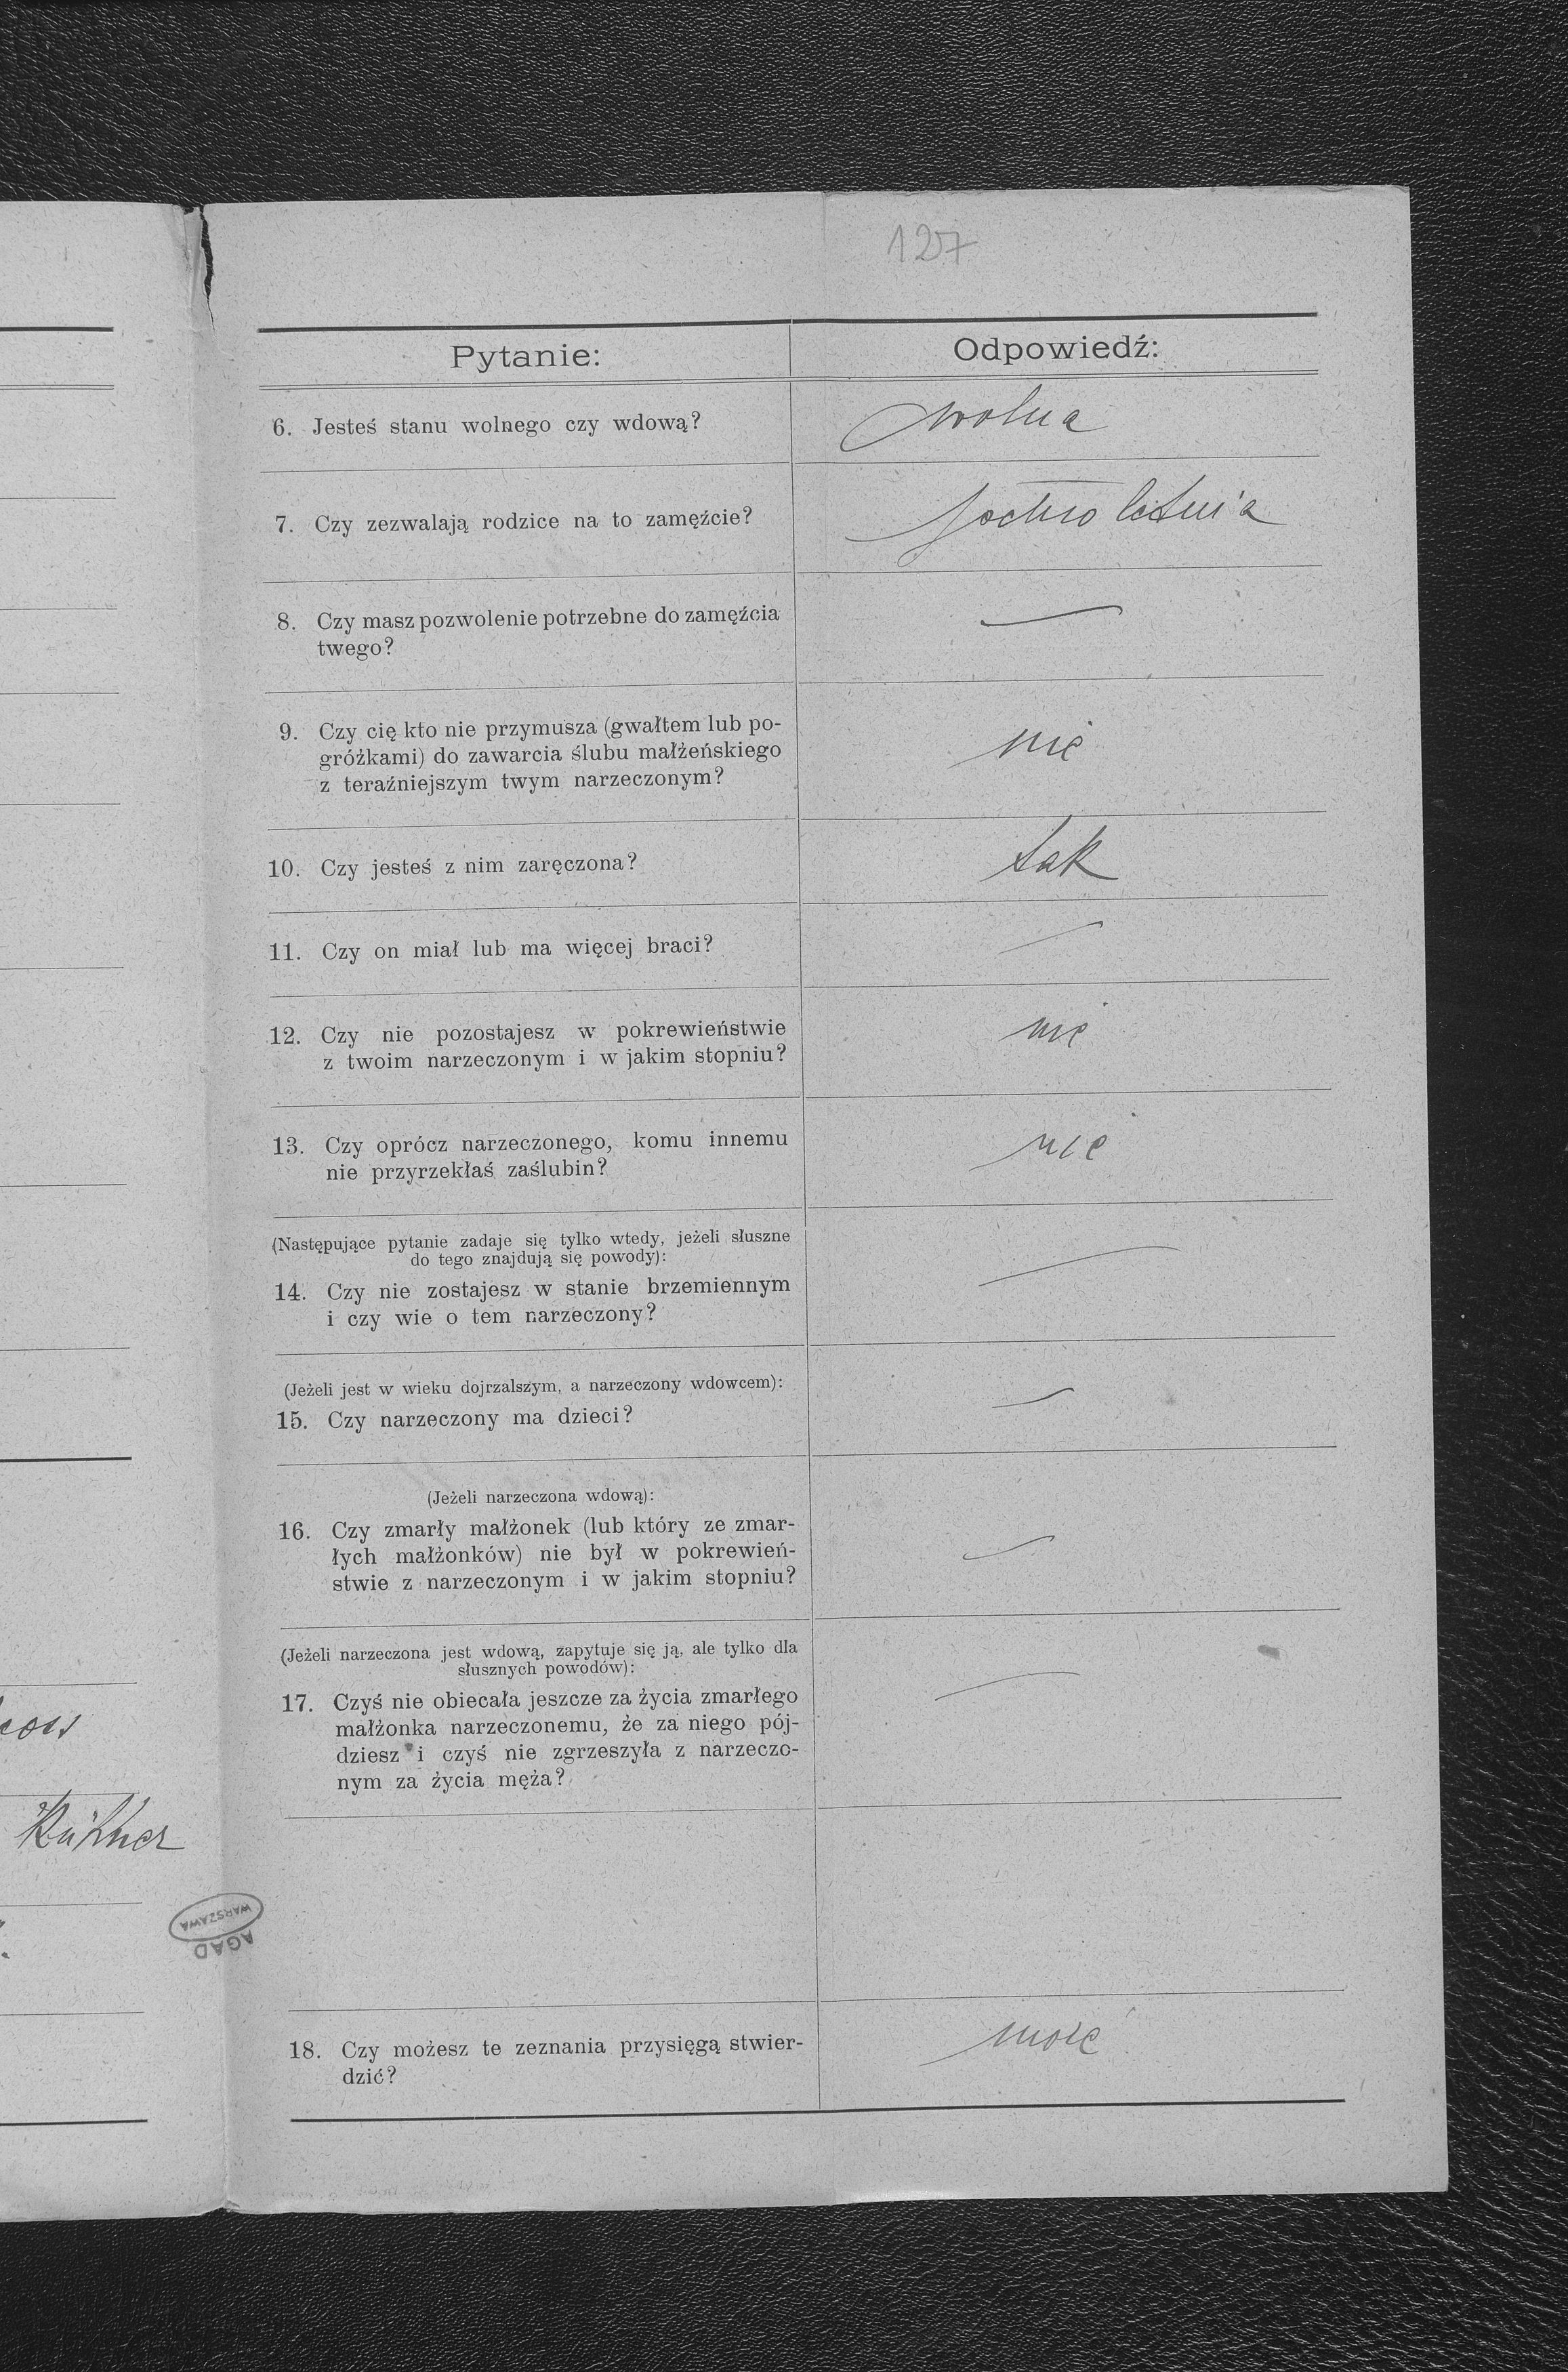 127
Pytanie:
Odpowiedź:
6. Jesteś stanu wolnego czy wdową?
wolna
7. Czy zezwalają rodzice na to zamęźcie?
8. Czy masz pozwolenie potrzebne do zamęźcia
twego?
—
9. Czy cię kto nie przymusza (gwałtem lub po-
gróżkami) do zawarcia ślubu małżeńskiego
z teraźniejszym twym narzeczonym?
nie
10. Czy jesteś z nim zaręczona?
tak
11. Czy on miał lub ma więcej braci?
—
12. Czy nie pozostajesz w pokrewieństwie
z twoim narzeczonym i w jakim stopniu?
nie
13. Czy oprócz narzeczonego, komu innemu
nie przyrzekłaś zaślubin?
nie
(Następujące pytanie zadaje się tylko wtedy, jeżeli słuszne
do tego znajdują się powody):
14. Czy nie zostajesz w stanie brzemiennym
i czy wie o tem narzeczony?
—
(Jeżeli jest w wieku dojrzalszym, a narzeczony wdowcem):
15. Czy narzeczony ma dzieci?
—
(Jeżeli narzeczona wdową):
16. Czy zmarły małżonek (lub który ze zmar-
łych małżonków) nie był w pokrewień-
stwie z narzeczonym i w jakim stopniu?
—
(Jeżeli narzeczona jest wdową, zapytuje się ją, ale tylko dla
słusznych powodów):
17. Czyś nie obiecała jeszcze za życia zmarłego
małżonka narzeczonemu, że za niego pój-
dziesz i czyś nie zgrzeszyła z narzeczo-
nym za życia męża?
—
18. Czy możesz te zeznania przysięgą stwier-
dzić?
może
AGAD
WARSZAWA